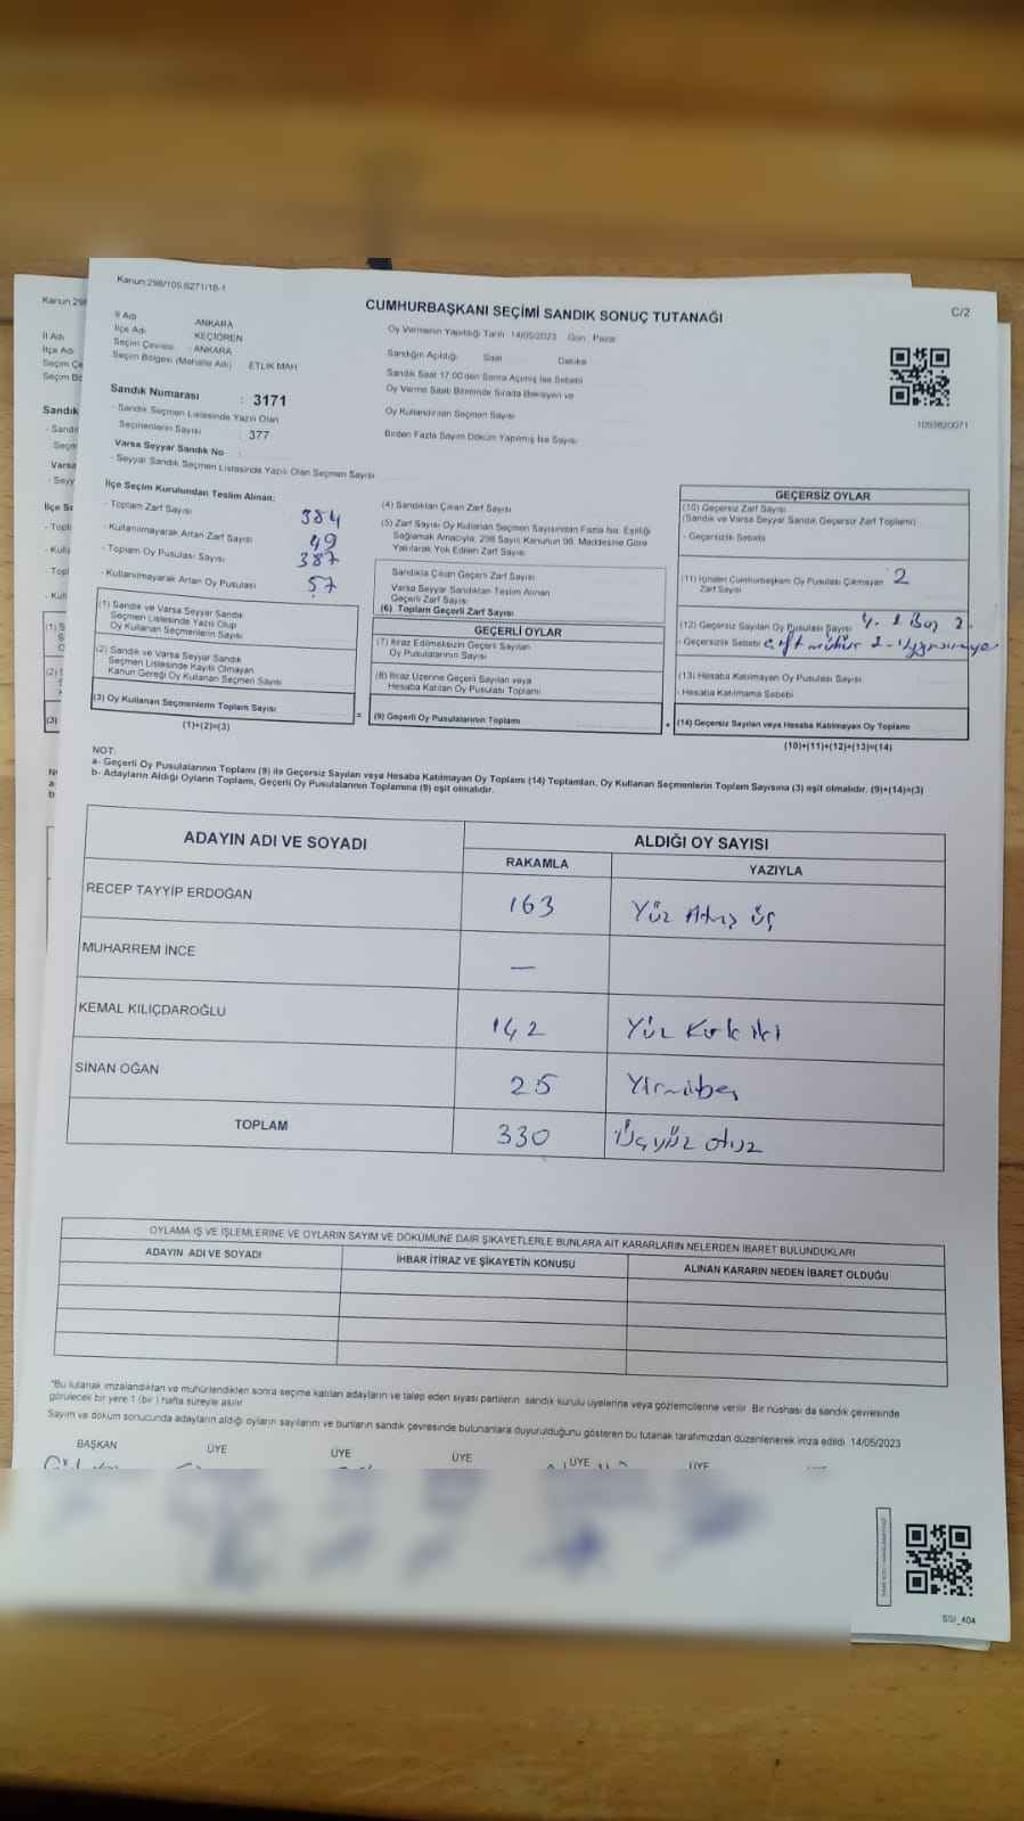 Kanun:298/105,6271/18-1
CUMHURBAŞKANI SEÇİMİ SANDIK SONUÇ TUTANAĞI
C/2
İl Adı ANKARA
İlçe Adı KEÇİÖREN
Seçim Çevresi ANKARA
Seçim Bölgesi (Mahalle Adı) ETLİK MAH
Oy Vermenin Yapıldığı Tarih 14/05/2023 Gün: Pazar
Sandığın Açıldığı Saat Dakika
Sandık Saat 17:00'den Sonra Açılmış İse Sebebi
Oy Verme Saati Bitiminde Sırada Bekleyen ve
Oy Kullandırılan Seçmen Sayısı
Birden Fazla Sayım Döküm Yapılmış İse Sayısı
Sandık Numarası : 3171
- Sandık Seçmen Listesinde Yazılı Olan
Seçmenlerin Sayısı : 377
Varsa Seyyar Sandık No
- Seyyar Sandık Seçmen Listesinde Yazılı Olan Seçmen Sayısı
İlçe Seçim Kurulundan Teslim Alınan;
- Toplam Zarf Sayısı 384
- Kullanılmayarak Artan Zarf Sayısı 49
- Toplam Oy Pusulası Sayısı 387
- Kullanılmayarak Artan Oy Pusulası 57
(1) Sandık ve Varsa Seyyar Sandık
Seçmen Listesinde Yazılı Olup
Oy Kullanan Seçmenlerin Sayısı
(2) Sandık ve Varsa Seyyar Sandık
Seçmen Listesinde Kayıtlı Olmayan
Kanun Gereği Oy Kullanan Seçmen Sayısı
(3) Oy Kullanan Seçmenlerin Toplam Sayısı
(1)+(2)=(3)
(4) Sandıktan Çıkan Zarf Sayısı
(5) Zarf Sayısı Oy Kullanan Seçmen Sayısından Fazla İse, Eşitliği
Sağlamak Amacıyla, 298 Sayılı Kanunun 98. Maddesine Göre
Yakılarak Yok Edilen Zarf Sayısı
Sandıkta Çıkan Geçerli Zarf Sayısı
Varsa Seyyar Sandıktan Teslim Alınan
Geçerli Zarf Sayısı
(6) Toplam Geçerli Zarf Sayısı
GEÇERLİ OYLAR
(7) İtiraz Edilmeksizin Geçerli Sayılan
Oy Pusulalarının Sayısı
(8) İtiraz Üzerine Geçerli Sayılan veya
Hesaba Katılan Oy Pusulası Toplamı
= (9) Geçerli Oy Pusulalarının Toplamı
GEÇERSİZ OYLAR
(10) Geçersiz Zarf Sayısı
(Sandık ve Varsa Seyyar Sandık Geçersiz Zarf Toplamı)
- Geçersizlik Sebebi
(11) İçinden Cumhurbaşkanı Oy Pusulası Çıkmayan 2
Zarf Sayısı
(12) Geçersiz Sayılan Oy Pusulası Sayısı
- Geçersizlik Sebebi çift mühür
(13) Hesaba Katılmayan Oy Pusulası Sayısı
- Hesaba Katılmama Sebebi
+ (14) Geçersiz Sayılan veya Hesaba Katılmayan Oy Toplamı
(10)+(11)+(12)+(13)=(14)
NOT:
a- Geçerli Oy Pusulalarının Toplamı (9) ile Geçersiz Sayılan veya Hesaba Katılmayan Oy Toplamı (14) Toplamları, Oy Kullanan Seçmenlerin Toplam Sayısına (3) eşit olmalıdır. (9)+(14)=(3)
b- Adayların Aldığı Oyların Toplamı, Geçerli Oy Pusulalarının Toplamına (9) eşit olmalıdır.
ADAYIN ADI VE SOYADI
ALDIĞI OY SAYISI
RAKAMLA YAZIYLA
RECEP TAYYİP ERDOĞAN 163 Yüz Altmış üç
MUHARREM İNCE —
KEMAL KILIÇDAROĞLU 142 Yüz Kırk iki
SİNAN OĞAN 25 Yirmibeş
TOPLAM 330 Üçyüz otuz
OYLAMA İŞ VE İŞLEMLERİNE VE OYLARIN SAYIM VE DÖKÜMÜNE DAİR ŞİKAYETLERLE BUNLARA AİT KARARLARIN NELERDEN İBARET BULUNDUKLARI
ADAYIN ADI VE SOYADI İHBAR İTİRAZ VE ŞİKAYETİN KONUSU ALINAN KARARIN NEDEN İBARET OLDUĞU
*Bu tutanak imzalandıktan ve mühürlendikten sonra seçime katılan adayların ve talep eden siyasi partilerin sandık kurulu üyelerine veya gözlemcilerine verilir. Bir nüshası da sandık çevresinde
görülecek bir yere 1 (bir) hafta süreyle asılır
Sayım ve döküm sonucunda adayların aldığı oyların sayılarını ve bunların sandık çevresinde bulunanlara duyurulduğunu gösteren bu tutanak tarafımızdan düzenlenerek imza edildi. 14/05/2023
BAŞKAN ÜYE ÜYE ÜYE ÜYE ÜYE
SSI_404